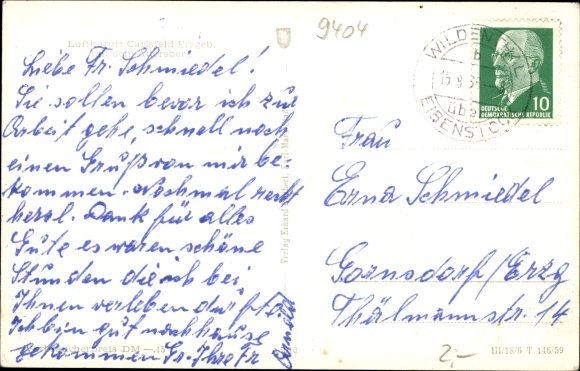 9404
Luftkurort Carlsfeld Erzgeb.
Liebe Fr. Schmiedel!
Sie sollen bevor ich zur
Arbeit gehe, schnell noch
einen Gruß von mir be
kommen. Nochmal recht
herzl. Dank für alles
Gute es waren schöne
Stunden die ich bei
Ihnen verleben durfte.
Ich bin gut nachhause
gekommen Gr. Ihre Fr
Arnold
Verlag Erhard
DM —.15
WILDENTH
15.8.6
über
EIBENSTOCK
DEUTSCHE
DEMOKRATISCHE REPUBLIK
10
Frau
Erna Schmiedel
Gornsdorf/Erzg
Thälmannstr. 14
2,-
III/18/6 T 146/59